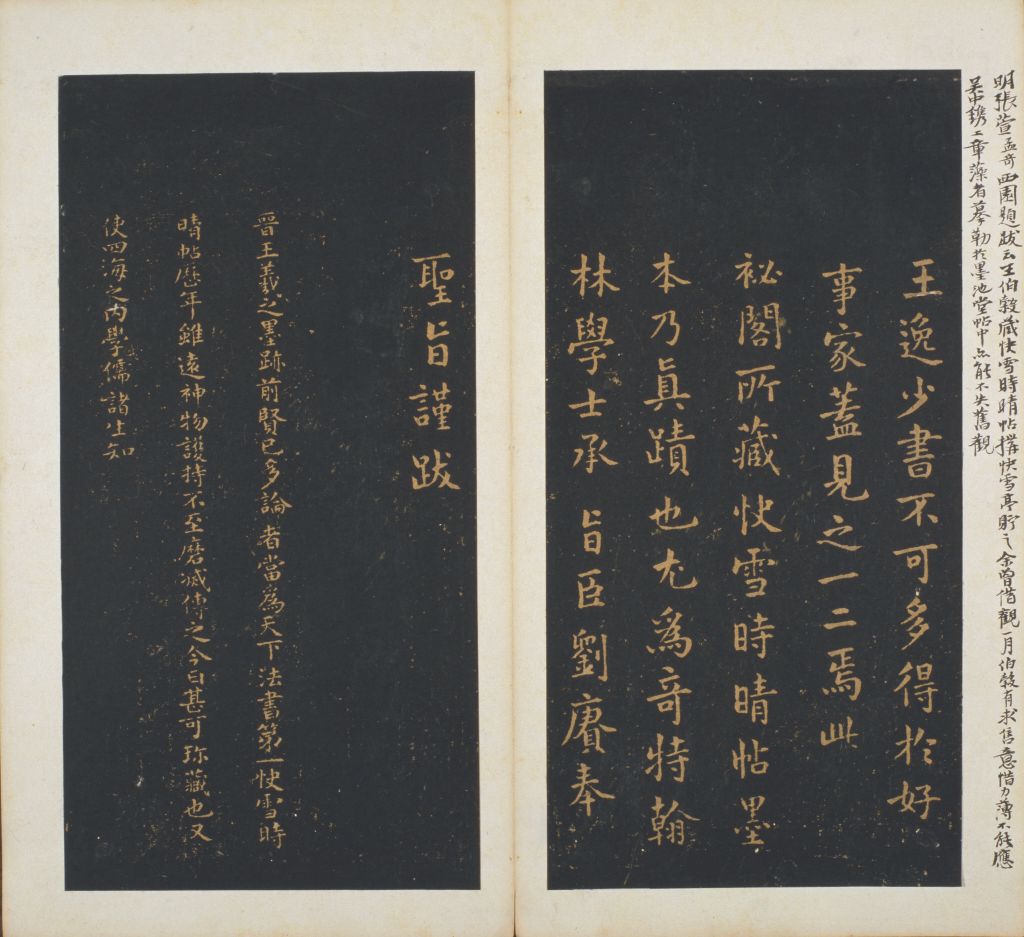 明張萱孟奇西園題跋云王伯穀藏快雪時晴帖搆快雪亭貯之余曾借觀一月伯穀有求信意惜力薄不能應
吳中鐫工章藻者摹勒於墨池堂帖中亦能不失舊觀
王逸少書不可多得於好
事家蓋見之一二焉此
祕閣所藏快雪時晴帖墨
本乃眞蹟也尤爲竒特翰
林學士承旨臣劉賡奉
聖旨謹跋
晉王羲之墨跡前賢已多論者當爲天下法書第一快雪時
晴帖歷年雖遠神物護持不至磨滅傳之今日甚可珎藏也又
使四海之內學儒諸生知